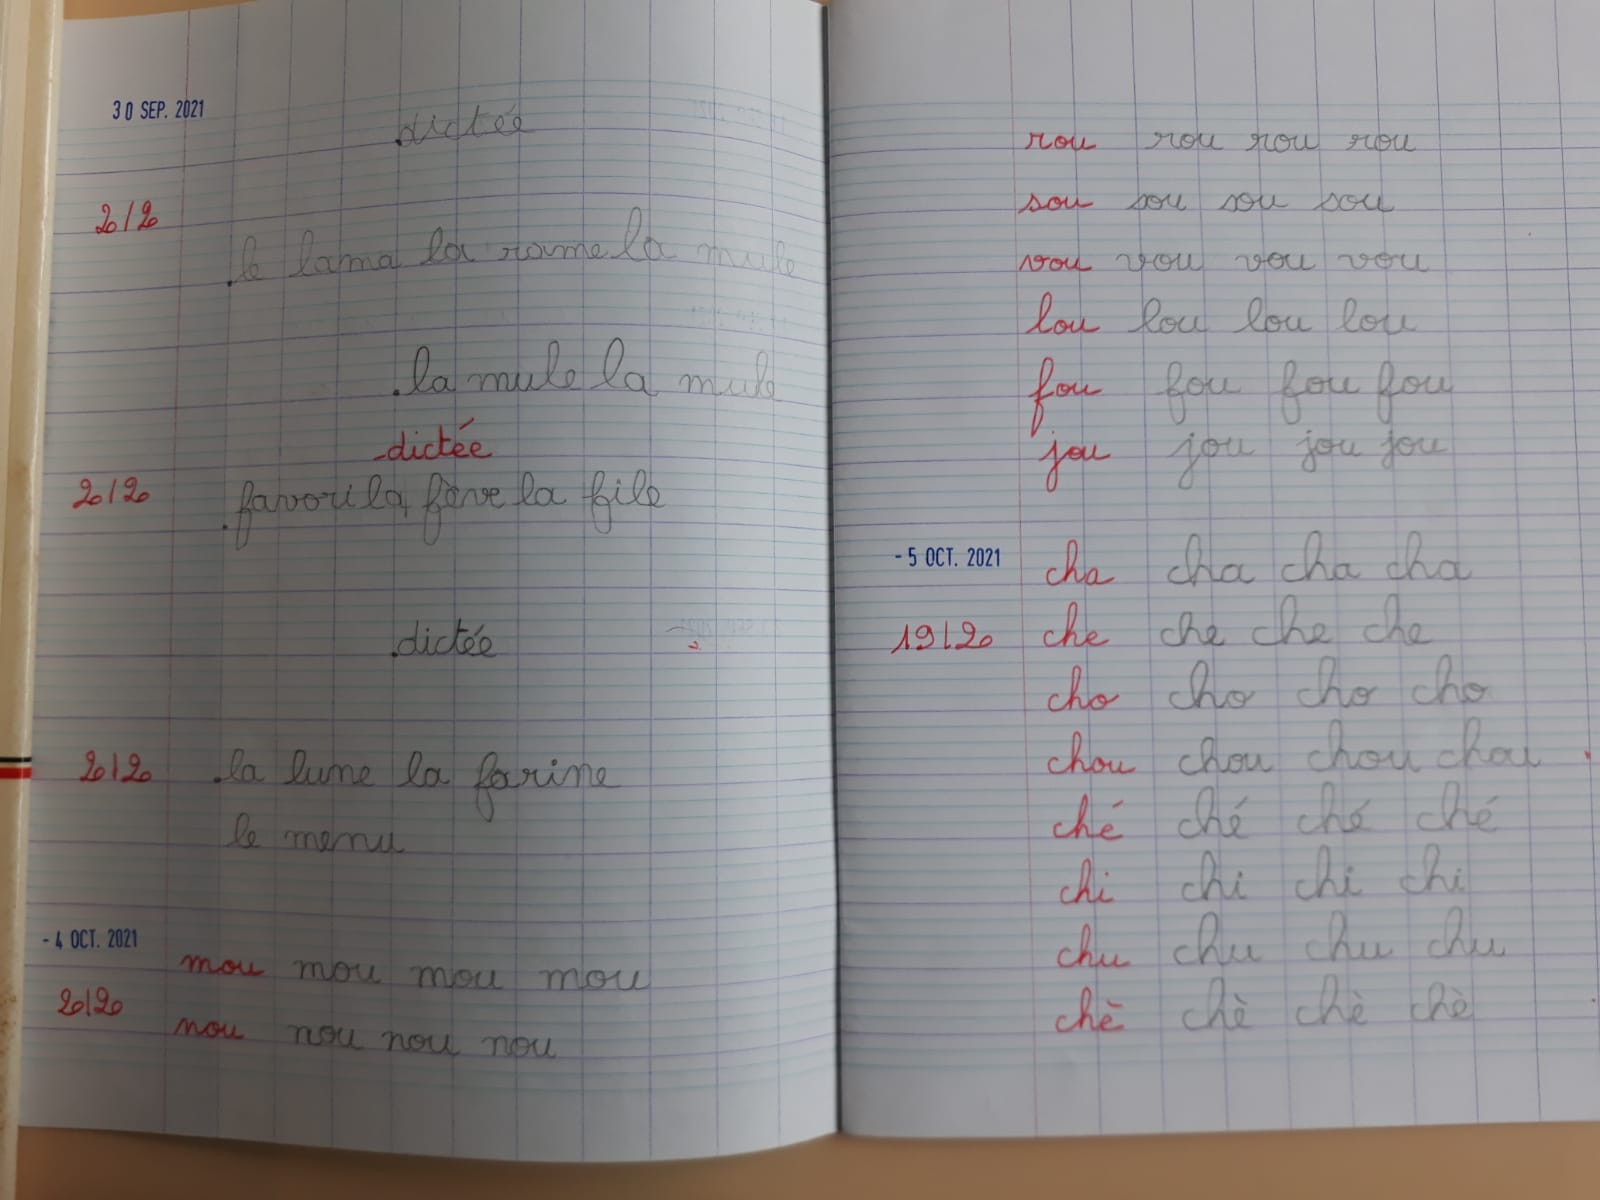 30 SEP. 2021
.dictée
20/20
.le lama la rame la mule
.la mule la mule
-dictée
20/20
.favori la fève la file
.dictée
20/20
.la lune la farine
le menu
- 4 OCT. 2021
mou mou mou mou
20/20
nou nou nou nou
rou rou rou rou
sou sou sou sou
vou vou vou vou
lou lou lou lou
fou fou fou fou
jou jou jou jou
- 5 OCT. 2021
cha cha cha cha
19/20
che che che che
cho cho cho cho
chou chou chou chou
ché ché ché ché
chi chi chi chi
chu chu chu chu
chè chè chè chè